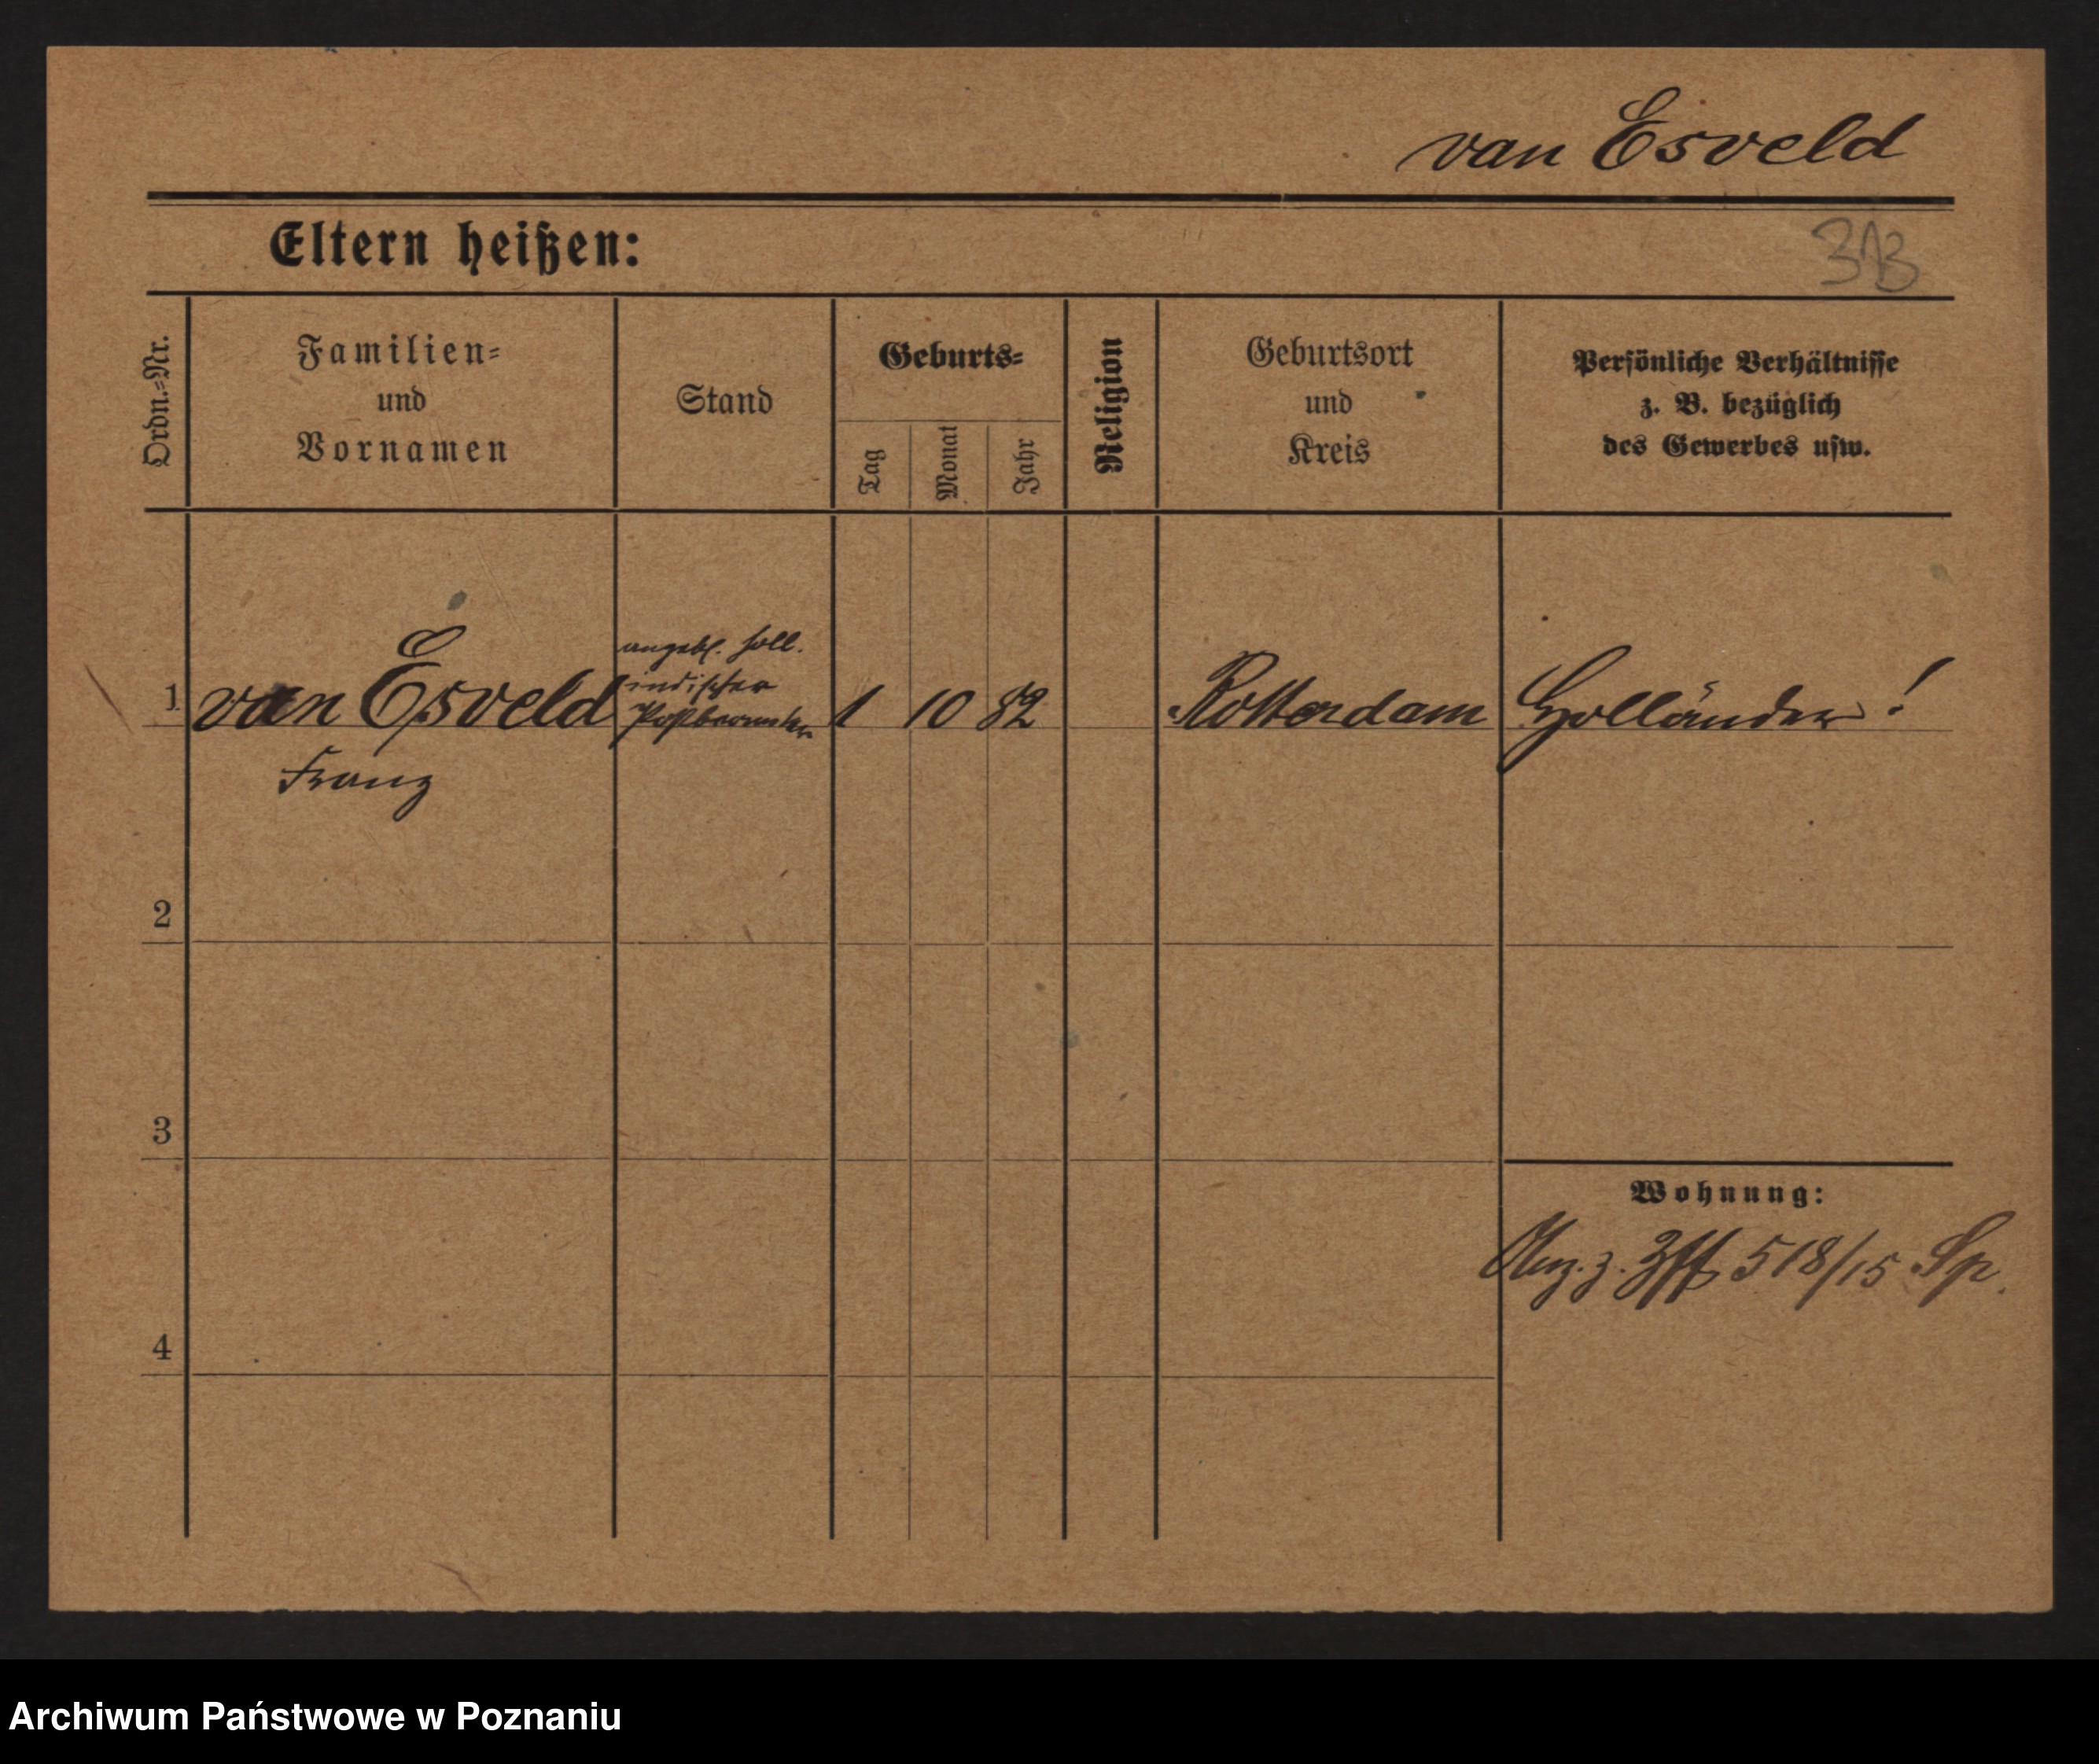 van Esveld
Eltern heißen:
313
Ordn.-Nr.
Familien-
und
Vornamen
Stand
Geburts-
Tag
Monat
Jahr
Religion
Geburtsort
und
Kreis
Persönliche Verhältnisse
z. B. bezüglich
des Gewerbes usw.
angebl. holl.
indischer
Postbeamter
1 van Esveld 1 10 82 Rotterdam Holländer!
Franz
2
3
Wohnung:
z. 518/15 Sp.
4
Archiwum Państwowe w Poznaniu